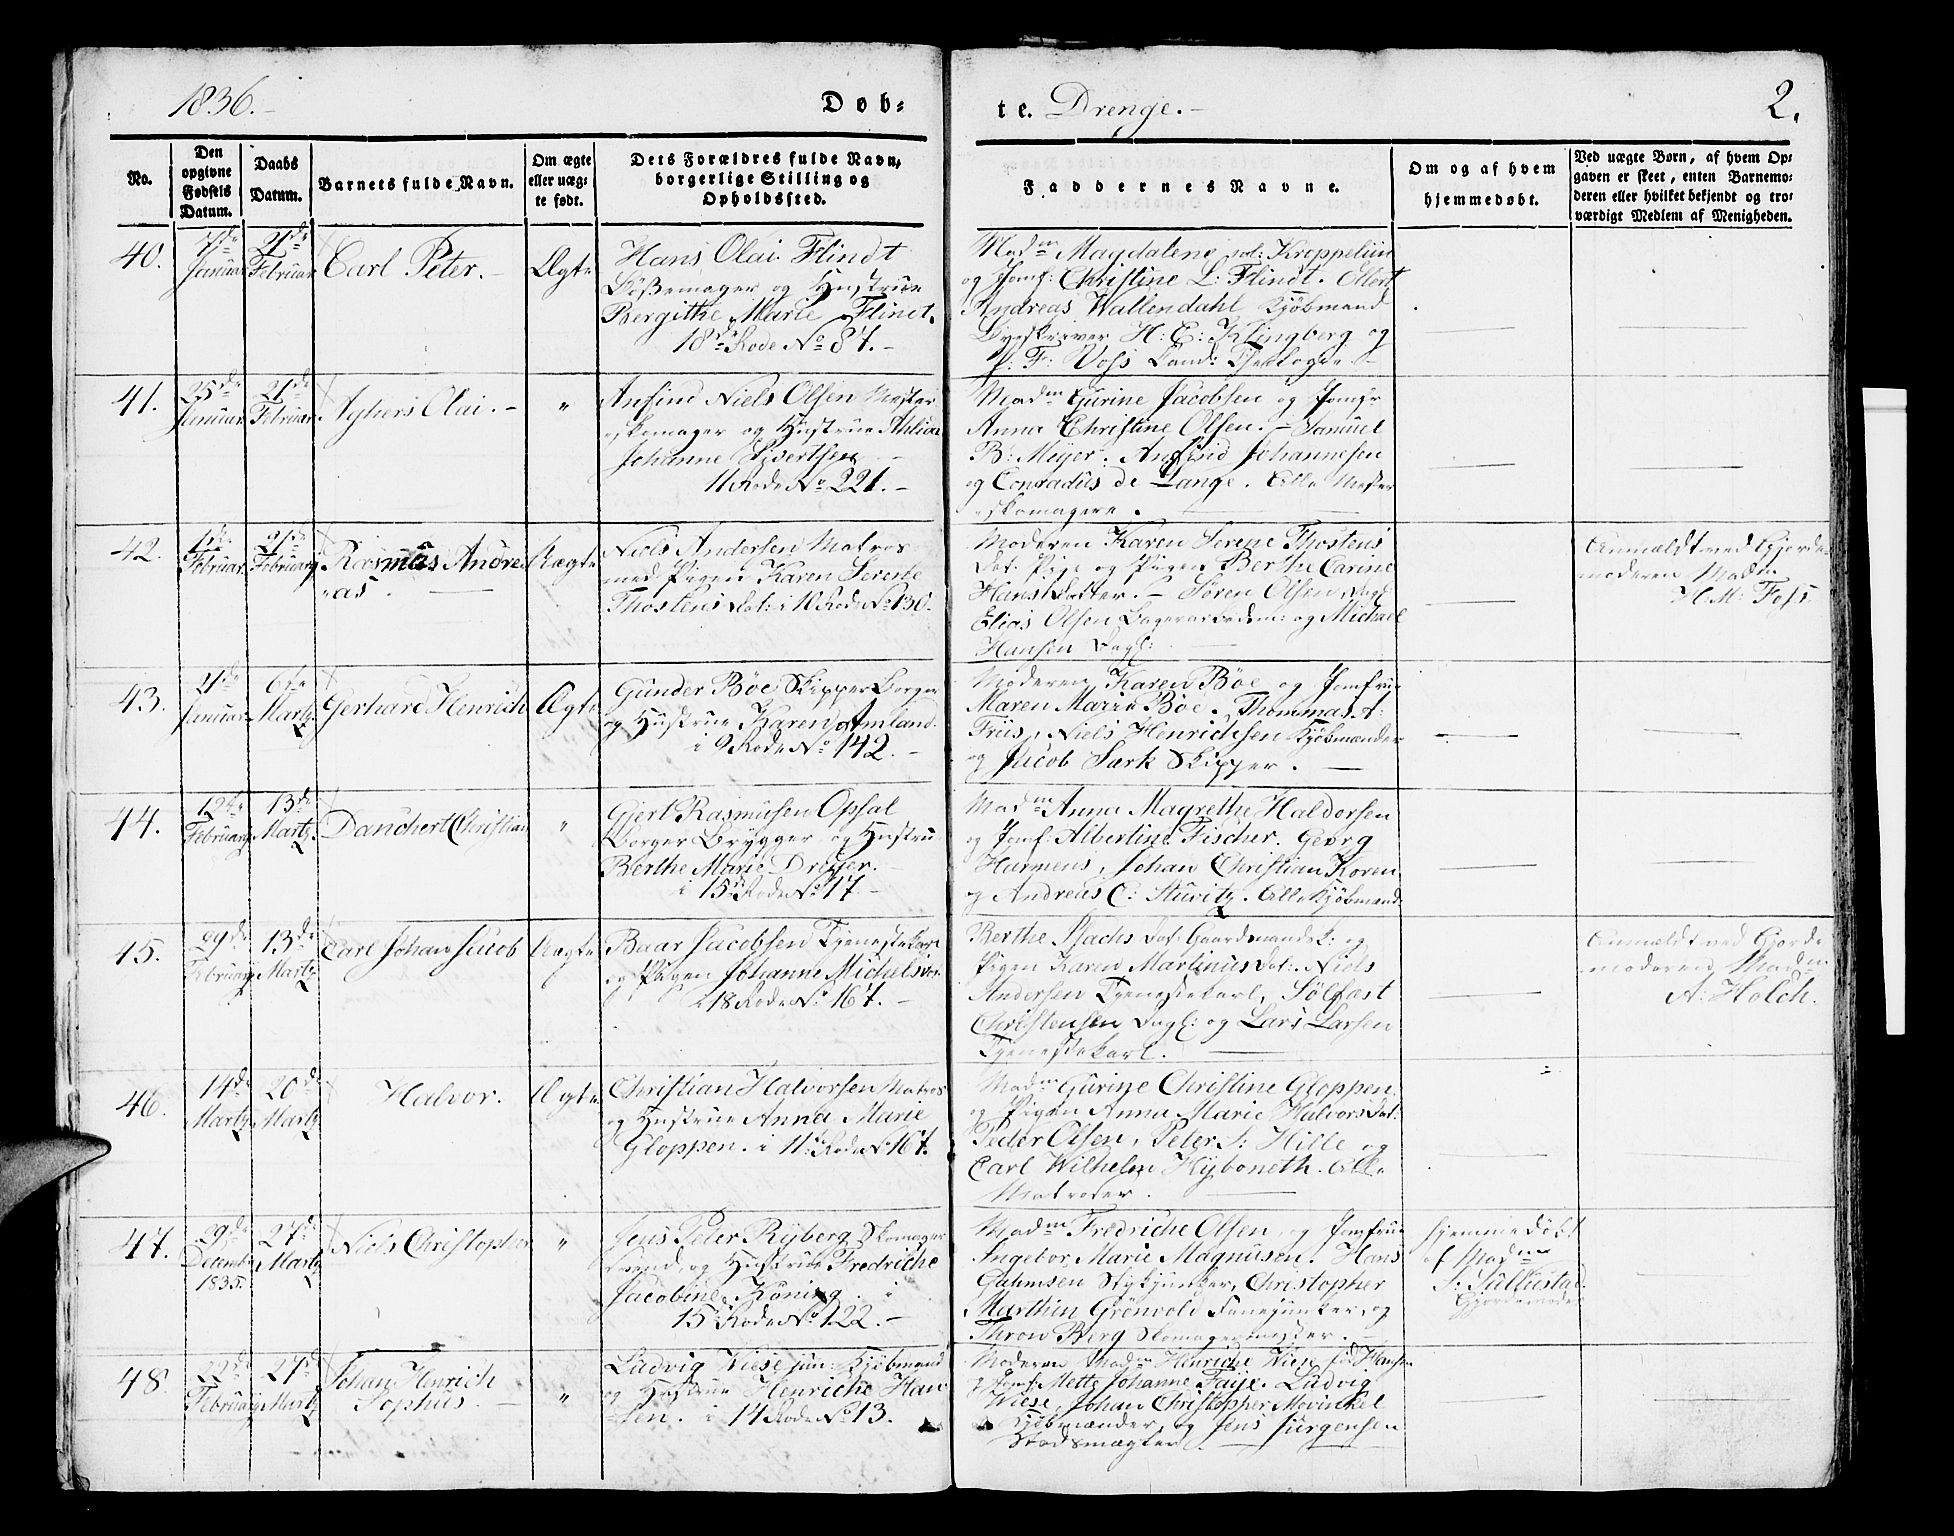 1836. Døb-
te. Drenge. 2.
No.
Den opgivne Fødsels Datum.
Daabs Datum.
Barnets fulde Navn.
Om ægte eller uægte født.
Dets Forældres fulde Navn, borgerlige Stilling og Opholdssted.
Faddernes Navne.
Om og af hvem hjemmedøbt.
Ved uægte Børn, af hvem Opgaven er skeet, enten Barnemoderen eller hvilket bekjendt og troværdigt Medlem af Menigheden.
40.
7de Januar
21de Februar
Carl Peter.
Ægte
Hans Olai Flindt
og Hustrue
Bergithe Marie Flindt.
18de Rode No 87.
Madm Magdalene Kroppeliin
og Jomf: Christine L: Flindt. Ellert
Andreas Wallendahl Kjøbmand
Byeskriver H: E: Klingberg og
P. F. Voss Cand: Theologie.
41.
25de Januar
21de Februar
Aghers Olai.
"
Anfind Niels Olsen Mester
skomager og Hustrue Ahlida
Johanne Sivertsen
11 Rode No 221.
Madm Gurine Jacobsen og Jomfr
Anna Christine Olsen. Samuel
B: Meyer. Anfind Johannesen
og Conradus de Lange. Alle Mester
skomagere.
42.
1ste Februar
21de Februar
Rasmus Andre
as.
Uægte
Niels Andersen Matros
med Pigen Karen Serene
Thostens Dat: i 10 Rode No 130.
Moderen Karen Serene Thostens
Dat: Pige og Pigen Berthe Carine
Hans Datter. Søren Olsen Dagl
Elias Olsen og Michael
Hansen Dagl:
Anmældt ved Gjorde
moderen Madm
H: M: Foss
43.
21de Januar
6te Martz
Gerhard Henrich
Ægte
Gunder Bøe Skipper Borger
og Hustrue Karen Amland.
i 9 Rode No 142.
Moderen Karen Bøe og Jomfrue
Maren Marie Bøe. Thommas A:
Friis, Niels Henrichsen Kjøbmænder
og Jacob Sark Skipper.
44.
12te Februar
13de Martz
Danchert Christian
"
Gjert Rasmusen Opsal
Borger Brygger og Hustru
Berthe Marie Dreyer.
i 15 Rode No 17.
Madm Anna Magrethe Haldorsen
og Jomf: Albertine Fischer. Georg
Harmens, Johan Christian Koren
og Andreas C: Sturitz. Alle Kjøbmænd
45.
29de Februar
13de Martz
Carl Johan Jacob
Uægte
Baar Jacobsen Tjenestekarl
og Pigen Johanne Michels Dat
i 18 Rode No 167.
Berthe Machs Dat: Gaardmands K: og
Pigen Karen Martinus Dat: Niels
Andersen Tjenestekarl, Sølfast
Christensen Dagl: og Lars Larsen
Tjenestekarl.
Anmældt ved Gjorde
moderen Madm
A: Holch.
46.
14de Martz
20de Martz
Halvor.
Ægte
Christian Halvorsen Matros
og Hustrue Anna Marie
Gloppen. i 11 Rode No 167.
Madm Gurine Christine Gloppen.
og Pigen Anna Marie Halvors Dat:
Peder Olsen, Peter S: Hille og
Carl Wilhelm Hyboneth. Alle
Matroser.
47.
29de Decembr 1835.
27de Martz
Niels Christopher
"
Jens Peter Ryberg Skomager
svend, og Hustrue Fredriche
Jacobine Køning. i
15de Rode No 122.
Madm Fredriche Olsen og Jomfrue
Ingebor Marie Magnusen. Hans
Gahmsen Stykjunker, Christopher
Marthin Grønvold Fanejunker, og
Thron Berg Skomagermester.
Hjemmedøbt
af Madm
S: Sullustad.
Gjordemoder
48
22de Februar
27de Martz
Johan Henrich
Sophus.
"
Ludvig Wiese jun: Kjøbmand
og Hustrue Henriche Han
sen. i 14 Rode No 13.
Moderen Madm Henriche Wiese fød Hansen
og Jomf: Mette Johanne Faye. Ludvig
Wiese, Johan Christopher Mowinkel
Kjøbmænder, og Jens Jürgensen
Stadsmægler